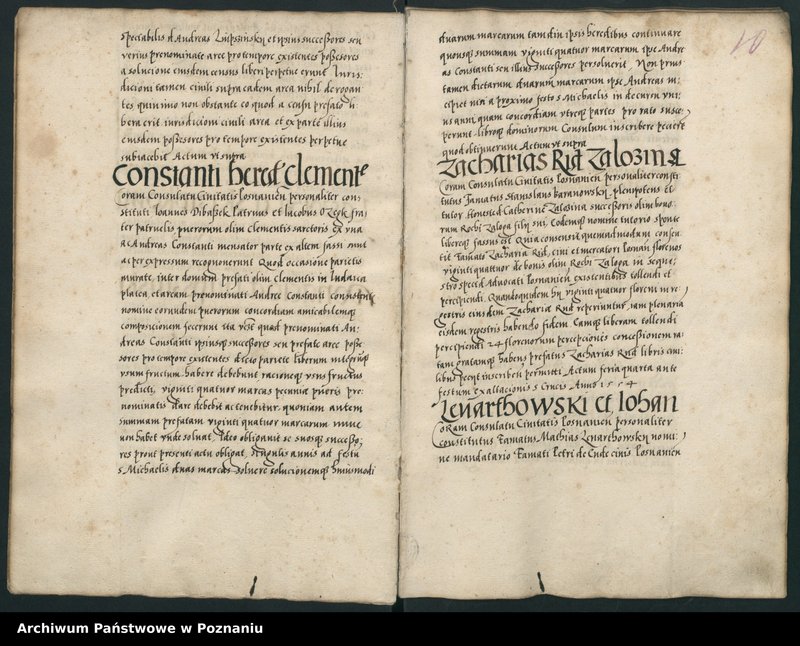 spectabilis d Andreas Lipszinskij et ipsius successores seu
verius prenominate aree pro tempore existentes possesores
a solucione eiusdem census liberi perpetue erunt Iuris:
dicioni tamen civili supra eadem area nihil derogan
tes quinimo non obstante eo quod a censu prefato li
bera erit iurisdicioni civili area et ex parte illius
eiusdem possesores pro tempore existentes perpetue
subiacebit Actum ut supra
Constanti hered Clement
Coram Consulatu Civitatis Posnanien personaliter con:
stituti Ioannes Dibassek Patruus et Iacobus fra
ter patruelis puerorum olim Clementis sartoris ex una
ac Andreas Constanti mensator parte ex altera fassi sunt
ac per expressum recognoverunt Quod occasione parietis
murate inter domum prefati olim Clementis in Iudaica
platea et aream prenominati Andree Constanti consistentis
nomine eorundem puerorum concordiam amicabilemque
composicionem fecerunt ita quod prenominati An:
dreas Constanti ipsiusque successores seu prefate aree posse
sores pro tempore existentes de eo pariete liberum integrumque
usum fructum habere debebunt racioneque usus fructus
predicti, viginti quatuor marcas pecunie prioris pre:
nominatis dare debebit ac tenebitur quoniam autem
summam prefatam viginti quatuor marcarum nunc
non habet unde solvat, Ideo obligavit se suosque successo:
res prout presenti actu obligat, singulis annis ad festu
s Michaelis duas marcas solvere solucionemque huiusmodi
duarum marcarum tamdiu ipsis heredibus continuare
quousque summam viginti quatuor marcarum ipse Andre
as Constanti seu illius successores persolverit, Non prius
tamen dictarum duarum marcarum ipse Andreas in:
cipiet nisi a proximo festo s Michaelis in decursu uni:
us anni quam concordiam utreque partes pro rato susce:
perunt librisque dominorum Consulum inscribere petiere
quod obtinuerunt Actum ut supra
Zacharias Rid Zalozina
Coram Consulatu Civitatis Posnanien personaliter consti
tutus Famatus Stanislaus Baranowskij, plenipotens et
tutor Honeste Catherine Zalozina successoris olim bono:
rum Rochi Zaloga filij sui, Eodemque nomine tutorio sponte
libereque fassus est Quia consensit quemadmodum consen
tit Famato Zacharia Rid, civi et mercatori Posnan florenos
viginti quatuor de bonis olim Rochi Zaloga in
stro Advocati Posnanien existentibus tollendi et
percipiendi. Quandoquidem hij viginti quatuor floreni in re:
gestris eiusdem Zacharia Rid reperiuntur, iam plenaria
eisdem regestris habendo fidem. Eamque liberam tollendi
percipiendi 24 florenorum percepciones concessionem ra
tam gratamque habens prefatus Zacharias Rid libris civi:
libus petyt inscribi permitti Actum feria quarta ante
festum exaltacionis s Crucis Anno 1554
Lenarthowski et Iohan
Coram Consulatu Civitatis Posnanien personaliter
constitutus Famatus Mathias Lenarthowskij nomi:
ne mandatario Famati Petri de Ende civis Posnanien
10
Archiwum Państwowe w Poznaniu